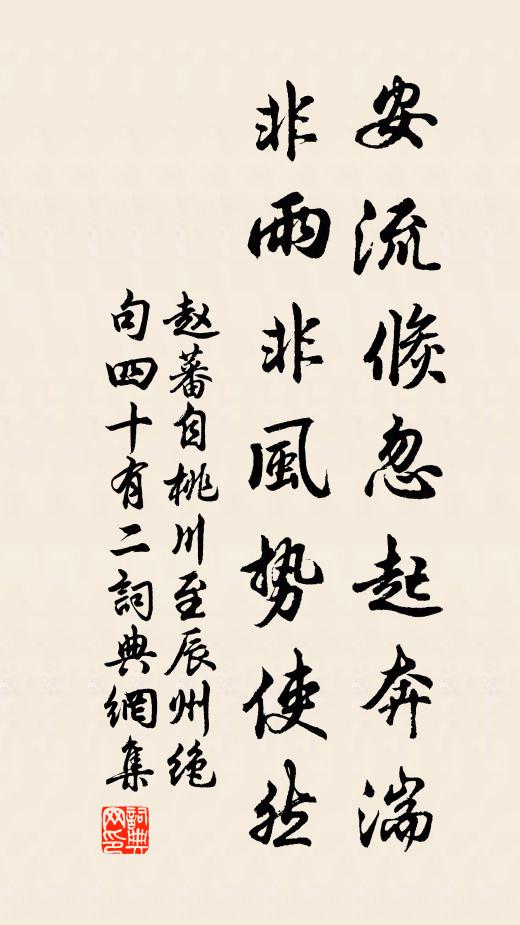 安流倏忽起奔湍
非雨非風勢使然
赵蕃自桃川至辰州绝
句四十有二詞典網集
詞典
网印